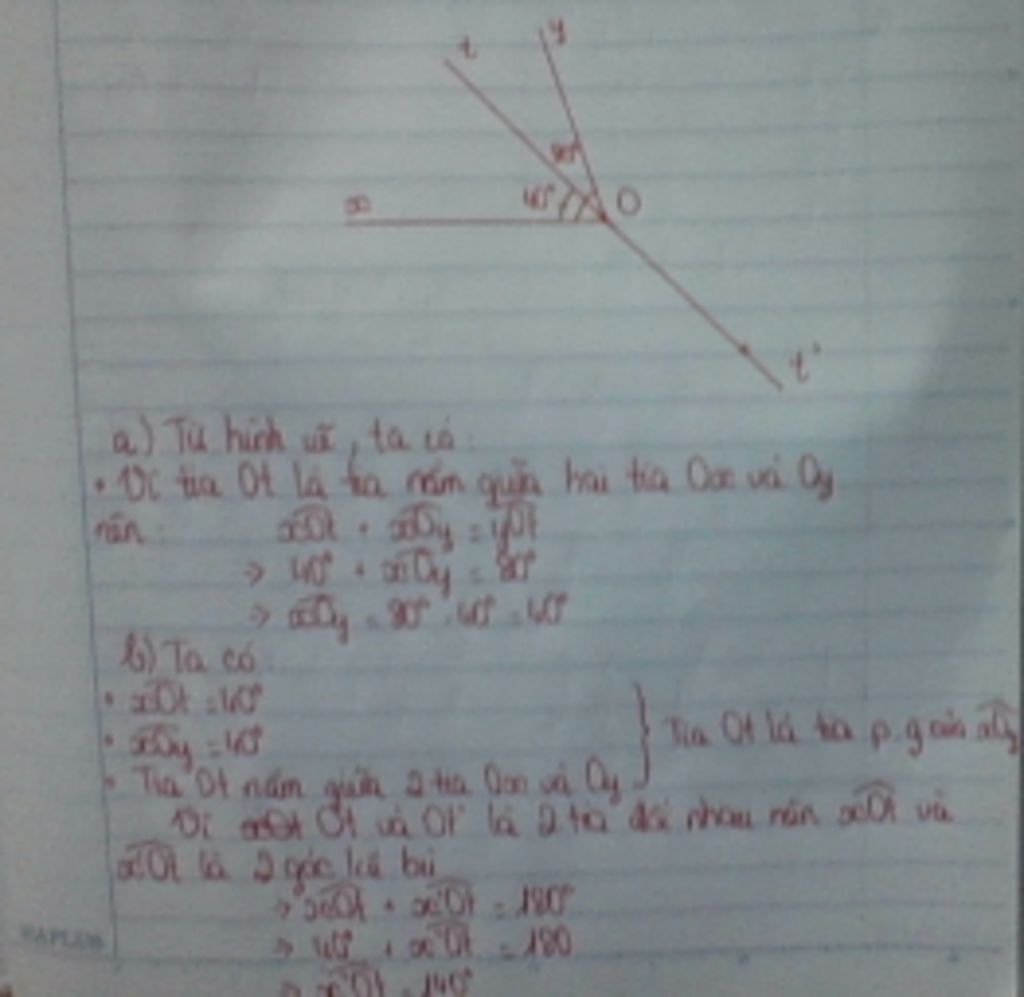 t
y
80°
40°
O
x
t'
a) Từ hình vẽ, ta có:
• Vì tia Ot là tia nằm giữa hai tia Ox và Oy
nên: xOt + xOy = yOt
=> 40° + xOy = 80°
=> xOy = 80° - 40° = 40°
b) Ta có
• xOt = 40°
• xOy = 40°
• Tia Ot nằm giữa 2 tia Ox và Oy
Tia Ot là tia p.g của xOy
Vì Ot và Ot' là 2 tia đối nhau nên xOt và
x'Ot là 2 góc kề bù
=> xOt + x'Ot = 180°
=> 40° + x'Ot = 180
=> x'Ot = 140°